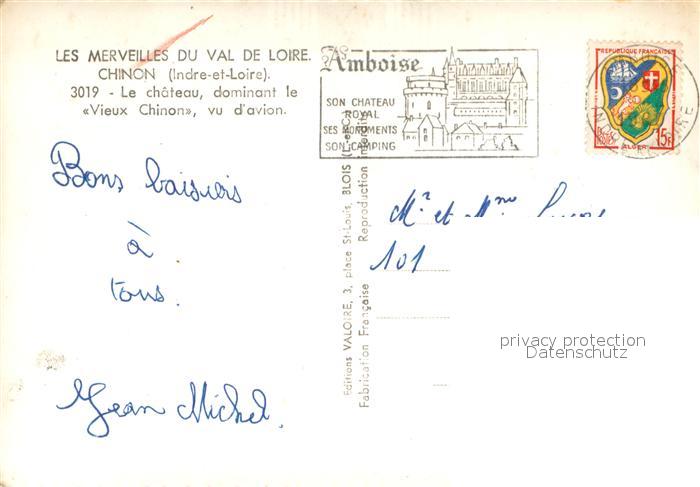 LES MERVEILLES DU VAL DE LOIRE.
CHINON (Indre-et-Loire).
3019 - Le château, dominant le
«Vieux Chinon», vu d'avion.
Bons baisers
à
tous.
Jean Michel.
Amboise
SON CHATEAU
ROYAL
SES MONUMENTS
SON CAMPING
REPUBLIQUE FRANÇAISE
POSTES
15F
ALGER
Editions VALOIRE, 3, place St-Louis, BLOIS
Fabrication Française Reproduction interdite
Mr et Mme
101
privacy protection
Datenschutz